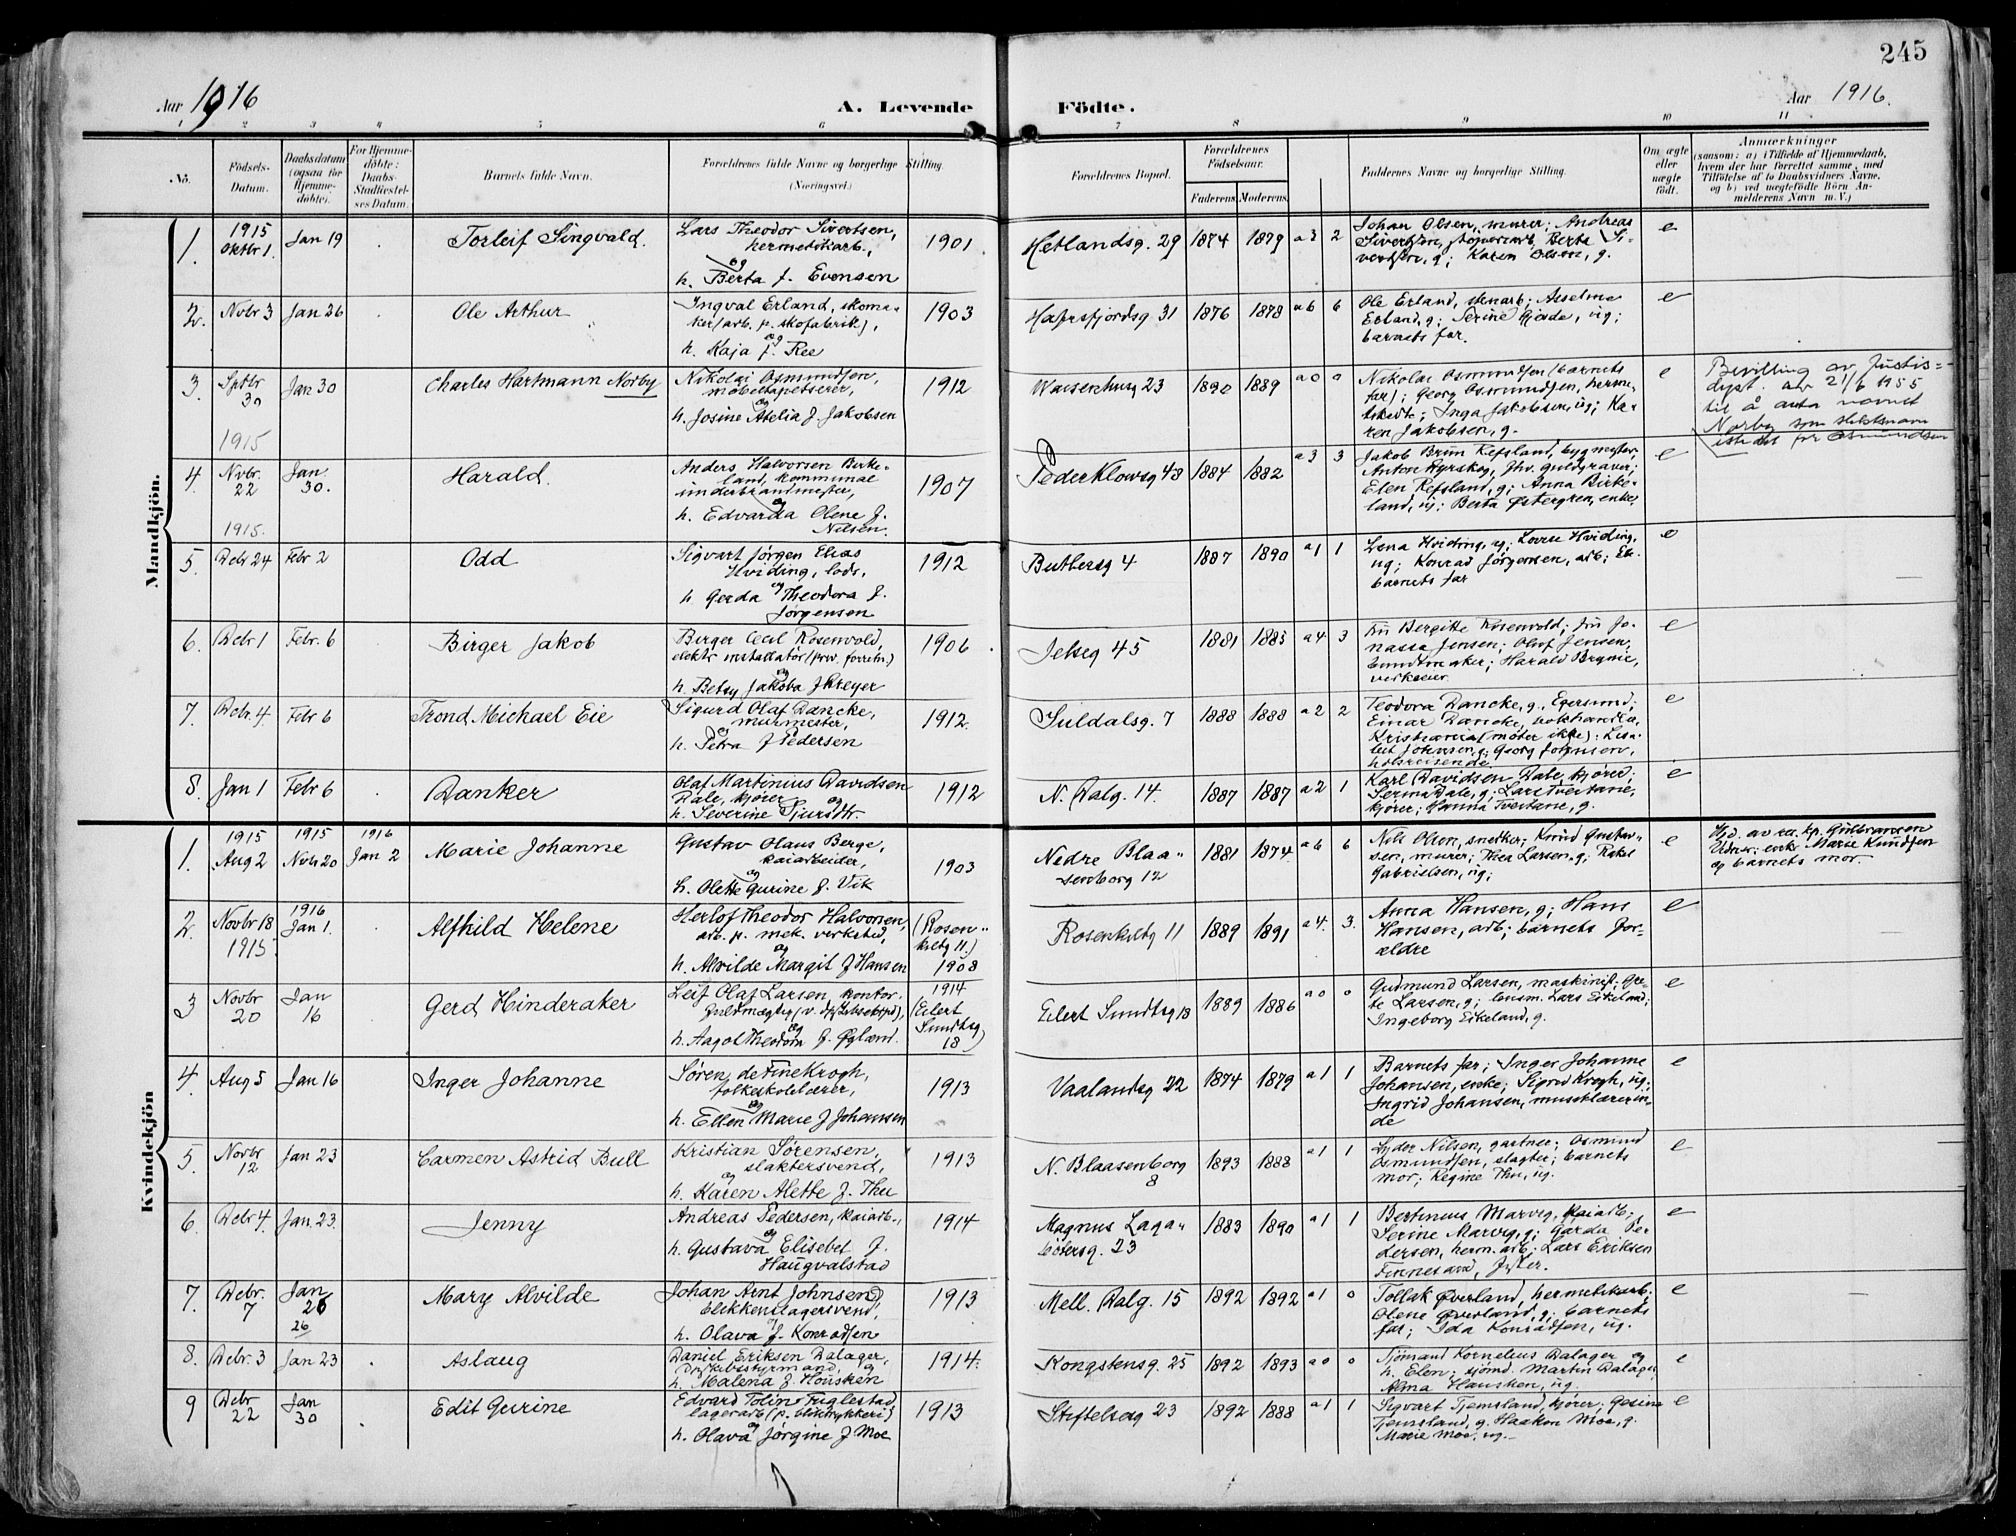 245
Aar 1916
A. Levende
Födte.
Aar 1916.
1 2 3 4 5 6 7 8 9 10 11
No.
Födsels-
Datum.
Daabsdatum
(ogsaa for
Hjemme-
döbte).
For Hjemme-
döbte:
Daabs-
Stadfæstel-
ses Datum.
Barnets fulde Navn.
Forældrenes fulde Navne og borgerlige Stilling.
(Næringsvei.)
Forældrenes Bopæl.
Forældrenes
Födselsaar.
Faderens. Moderens.
Faddernes Navne og borgerlige Stilling.
Om ægte
eller
uægte
födt.
Anmærkninger
(saasom: a) i Tilfælde af Hjemmedaab,
hvem der har forrettet samme, med
Tilföielse af to Daabsvidners Navne,
og b) ved uægtefödte Börn An-
melderens Navn m. V.)
Mandkjön.
1. 1915 Oktbr 1. Jan 19 Torleif Singvald.
Lars Theodor Sivertsen,
hermetikarb.,
og
h. Berta f. Evensen
1901
Hetlandsg. 29 1874 1879 a 3 2
Johan Olsen, murer; Andreas
Sivertsen, Berta Si-
vertsen, g; Karen Olsen, g.
e
2. Novbr 3 Jan 26 Ole Arthur
Ingval Erland, skoma-
ker (arb. p. skofabrik),
og
h. Kaja f. Ree
1903
Hafrsfjordsg 31 1876 1878 a 6 6
Ole Erland, stenarb; Asselme
Erland, g; Serine Gjerde, ug;
barnets far.
e
3. Sptbr 30 Jan 30 Charles Hartmann Norby
1915
Nikolai Osmundsen,
möbeltapetserer,
og
h. Josine Atelia f. Jakobsen
1912
Waisenhusg 23 1890 1889 a 0 0
Nikolai Osmundsen (barnets
far); Georg Osmundsen, herme-
tikarb; Inga Jakobsen, ug; Ka-
ren Jakobsen, g.
e
Bevilling av Justis-
dept. av 21/6 1955
til å anta navnet
Norby som slektsnavn
istedet for Osmundsen
4. Novbr. 22 Jan. 30. Harald.
1915.
Anders Halvorsen Birke-
land, kommunal
underbrandmester,
og
h. Edvarda Olene f.
Nilsen.
1907
Peder Klowsg 48 1884 1882 a 3 3
Jakob Brun Refsland, bygmester,
Anton Myrskog, fhv. guldgraver;
Elen Refsland, g; Anna Birke-
land, ug; Berta Østergren, enke;
e
5. Debr 24 Febr 2 Odd
Sigvart Jørgen Elias
Hviding, lods,
og
h. Gerda Theodora f.
Jørgensen
1912
Buebergg 4 1887 1890 a 1 1
Lena Hviding, ug; Lovise Hviding,
ug; Konrad Jørgensen, arb;
barnets far
e
6. Debr 1 Febr. 6 Birger Jakob
Birger Cecil Rosenvold,
elektr installatör (priv. forretn)
og
h. Betsy Jakoba f Kreyer
1906
Jelseg 45 1881 1885 a 4 3
Fru Bergitte Rosenvold; fru Jo-
nassa Jensen; Olaf Jensen,
buntmaker; Harald Bryne,
verkseier.
e
7. Debr. 4. Febr 6 Trond Michael Eie
Sigurd Olaf Dancke,
murmester,
og
h. Petra f Pedersen
1912.
Suldalsg. 7 1888 1888 a 2 2
Teodora Dancke, g., Egersund;
Einar Dancke, bokhandler,
Kristiania (möter ikke); Lisa-
bet Johnsen, g; Georg Johnsen,
holsreisende
e
8. Jan 1 Febr 6 Danker
Olaf Martinius Davidsen
Dale, kjörer og
h. Severine Sjursdtr.
1912
N. Dalg. 14. 1887 1887 a 2 1
Karl Davidsen Dale, kjörer;
Serina Dale, g; Lars Tveitane,
kjörer; Hanna Tveitane, g.
e
Kvindekjön
1. 1915 Aug 2 1915 Novbr 20 1916 Jan 2 Marie Johanne
Gustav Olaus Berge,
kaiarbeider,
og
h. Olette Gurine f. Vik
1903
Nedre Blaa-
senborg 12 1881 1874 a 6 6
Nils Olsen, snedker; Knud Gustav-
sen, murer; Thea Larsen, g; Rakel
Gabrielsen, ug;
e
Hjd. av res. kp. Gulbransen
Vidner: enke Marie Knudsen
og barnets mor.
2. Novbr 18 1915. 1916 Jan 1. Alfhild Helene
Herlof Theodor Halvorsen,
arb. p. mek. verksted,
og
h. Alvilde Margit f Hansen
(Rosen-
kiltg 11)
1908
Rosenkiltg 11 1889 1891 a 4. 3.
Anna Hansen, g; Hans
Hansen, arb; barnets for-
ældre
e
3 Novbr 20 Jan 16 Gerd Hinderaker
Leif Olaf Larsen, kontor-
fuldmægtig (v. dpskibsexped),
og
h. Aagot Theodora f. Øglænd.
1914
(Eilert
Sundtsg
18)
Eilert Sundtsg 18 1889 1886 a 0 0
Gudmund Larsen, maskinist; Gre-
te Larsen, g; lensm. Lars Eikeland;
Ingeborg Eikeland, g.
e
4. Aug 5 Jan 16 Inger Johanne
Søren de Fine Krogh,
folkeskolelærer,
og
h. Ellen Marie f Johansen
1913
Vaalandsg 22 1874 1879 a 1 1
Barnets far; Inger Johanne
Johansen, enke; Sigrid Krogh, ug;
Ingrid Johansen, musiklærerin-
de
e
5. Novbr 12 Jan 23 Carmen Astrid Bull
Kristian Sörensen,
slaktersvend,
og
h. Karen Alette f. Thu
1913
N. Blaasenborg
8 1893 1888 a 1 1
Lyder Nilsen, gartner; Osmund
Osmundsen, slagter; barnets
mor; Regine Thu, ug.
e
6. Debr 4. Jan. 23. Jenny
Andreas Pedersen, kaiarb.,
og
h. Gustava Elisebet f.
Haugvalstad
1914
Magnus Laga-
bötersg. 23 1883 1890 a 1 1
Bertinius Marvig, kaiarb.;
Serine Marvig, g; Garda Pe-
dersen, herm. arb.; Lars Eriksen
Finnesand, fisker.
e
7. Debr. 7 Jan 26 26 Mary Alvilde
Johan Arnt Johnsen
blikkenslagersvend,
og
h. Olava f. Konradsen
1913
Mell. Dalg. 15 1892 1892 a 1 0
Tollak Øverland, hermetikarb.
Olene Øverland, g; barnets
far; Ida Konradsen, ug.
e
8. Debr. 3 Jan 23 Aslaug
Daniel Eriksen Dalager,
Dpskibsstyrmand, og
h. Malena f. Housken
1914.
Kongstensg. 25 1892 1893 a 0 0
Sjömand Kornelius Dalager og
h. Elen; sjömd. Martin Dalager,
Alma Hausken, ug.
e
9 Debr 22 Jan 30 Edit Gurine
Edvard Tolin Fuglestad,
lagerarb (p. bliktrykkeri)
og
h. Olava Jørgine f Moe
1913
Stiftelsesg 23 1892 1888 a 1 1
Sigvart Tjemsland, kjörer; Gesine
Tjemsland, g. Haakon Moe, g.
Marie Moe, ug.
e